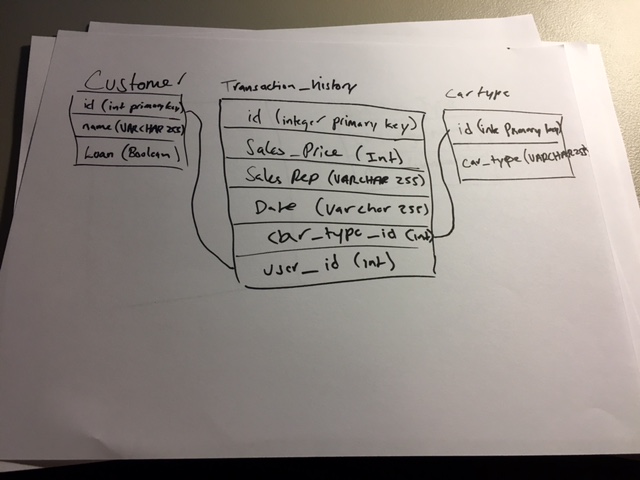 Customer
id (int primary key)
name (VARCHAR 255)
Loan (Boolean)
Transaction_history
id (integer primary key)
Sales_Price (Int)
Sales Rep (VARCHAR 255)
Date (Varchar 255)
car_type_id (int)
user_id (int)
Car type
id (int Primary key)
car_type (VARCHAR 255)